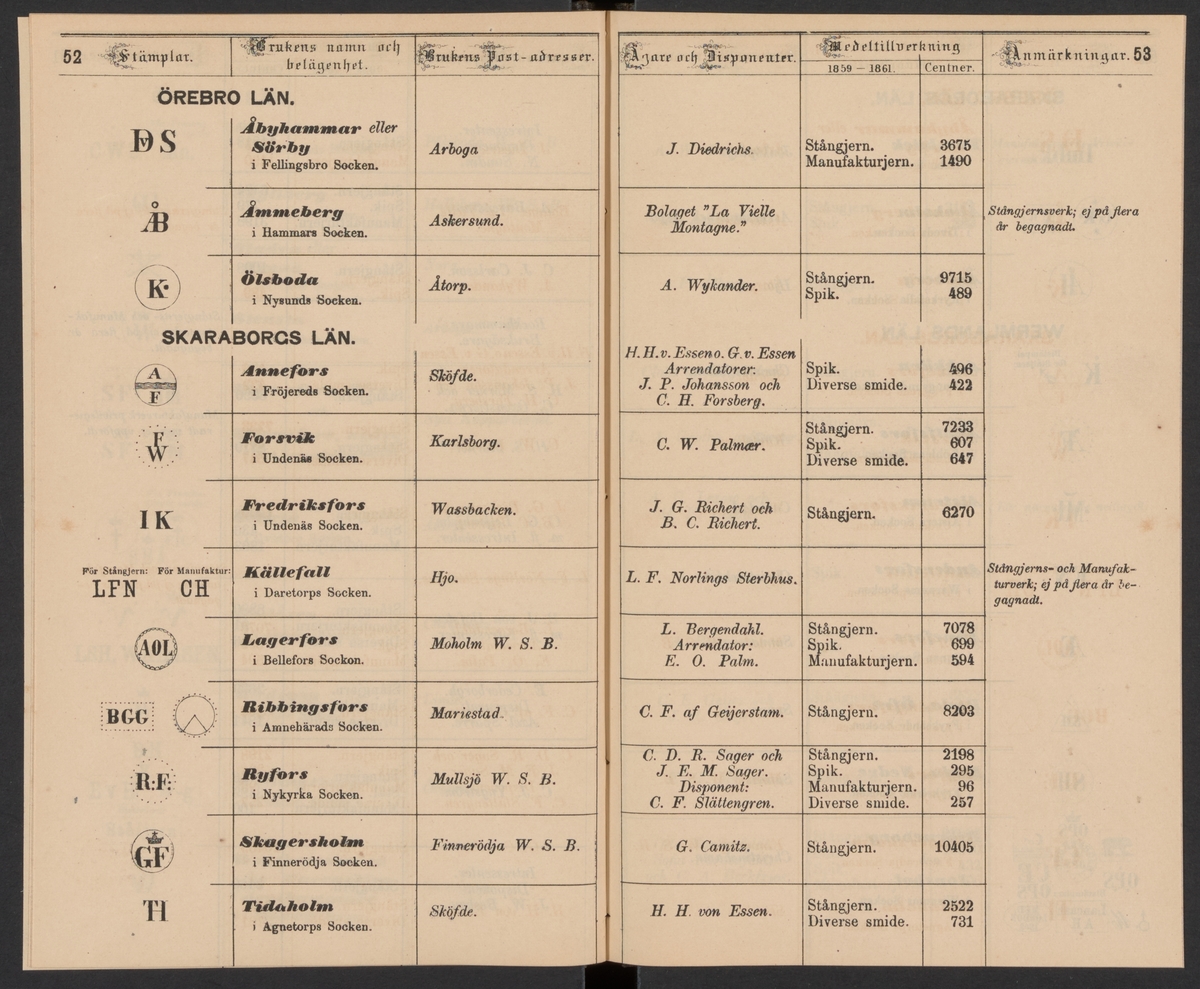 52 Stämplar. Brukens namn och belägenhet. Brukens Post-adresser. Ägare och Disponenter. Medeltillverkning 1859 – 1861. Centner. Anmärkningar. 53
ÖREBRO LÄN.
DS Åbyhammar eller Arboga J. Diedrichs. Stångjern. 3675
Sörby Manufakturjern. 1490
i Fellingsbro Socken.
ÅB Åmmeberg Askersund. Bolaget "La Vielle Stångjernsverk; ej på flera
i Hammars Socken. Montagne." år begagnadt.
K Ölsboda Åtorp. A. Wykander. Stångjern. 9715
i Nysunds Socken. Spik. 489
SKARABORGS LÄN.
A Annefors Sköfde. H. H. v. Essen o. G. v. Essen
F i Fröjereds Socken. Arrendatorer: Spik. 496
J. P. Johansson och Diverse smide. 422
C. H. Forsberg.
F Forsvik Karlsborg. C. W. Palmær. Stångjern. 7233
W i Undenäs Socken. Spik. 607
Diverse smide. 647
I K Fredriksfors Wassbacken. J. G. Richert och Stångjern. 6270
i Undenäs Socken. B. C. Richert.
För Stångjern: För Manufaktur: Källefall Hjo. L. F. Norlings Sterbhus. Stångjerns- och Manufak-
LFN CH i Daretorps Socken. turverk; ej på flera år be-
gagnadt.
AOL Lagerfors Moholm W. S. B. L. Bergendahl. Stångjern. 7078
i Bellefors Sockon. Arrendator: Spik. 699
E. O. Palm. Manufakturjern. 594
BGG Ribbingsfors Mariestad. C. F. af Geijerstam. Stångjern. 8203
i Amnehärads Socken.
R:F: Ryfors Mullsjö W. S. B. C. D. R. Sager och Stångjern. 2198
i Nykyrka Socken. J. E. M. Sager. Spik. 295
Disponent: Manufakturjern. 96
C. F. Slättengren. Diverse smide. 257
GF Skagersholm Finnerödja W. S. B. G. Camitz. Stångjern. 10405
i Finnerödja Socken.
TH Tidaholm Sköfde. H. H. von Essen. Stångjern. 2522
i Agnetorps Socken. Diverse smide. 731